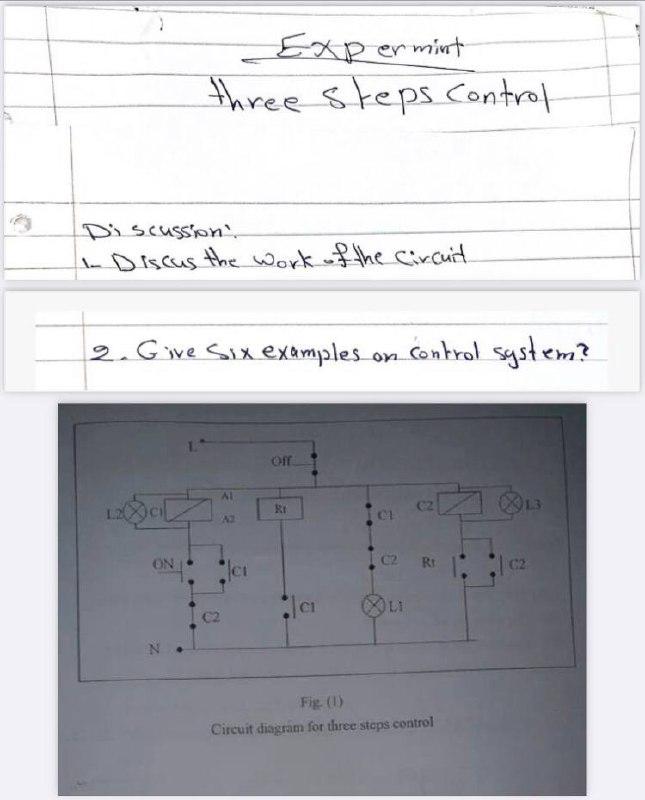 Expermint
three steps control
Discussion:
1- Discus the work of the circuit
2. Give Six examples on control system?
L
Off
L2 C1 A1 Rt C1 C2 L3
A2
ON C1 C2 Rt C2
C2 C1 L1
N
Fig. (1)
Circuit diagram for three steps control